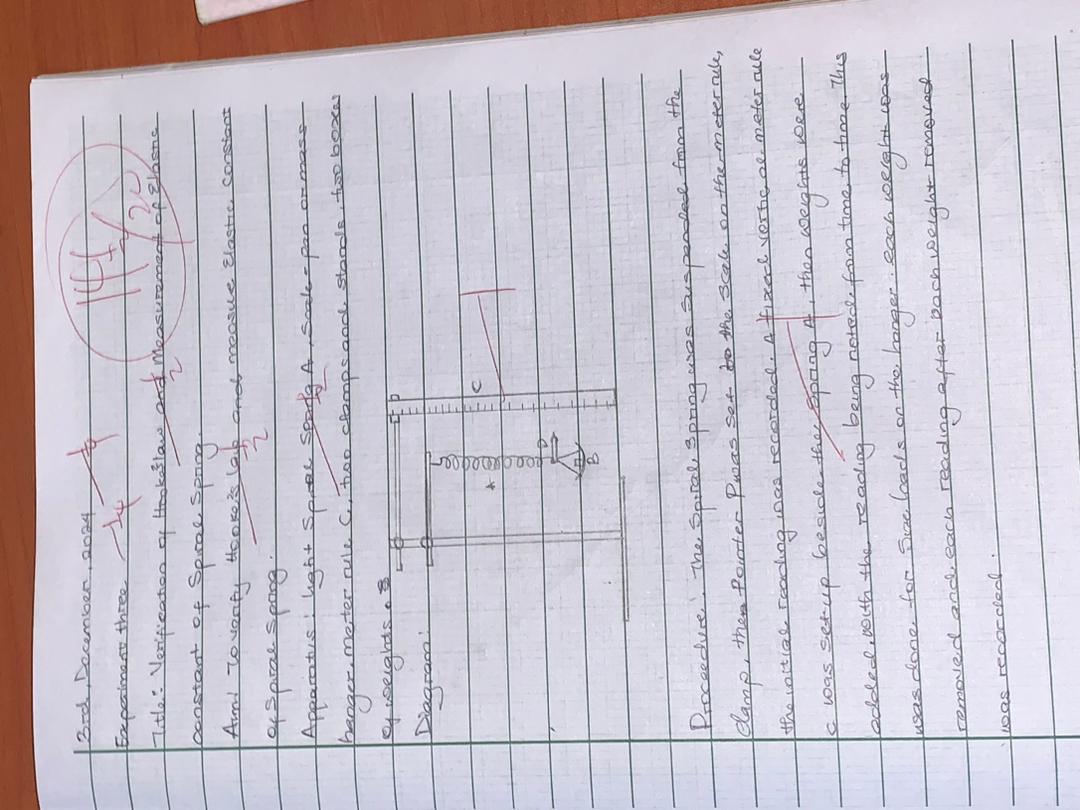 3rd, December, 2024
1/4
14½/20
Experiment three
1/4
Title: Verification of Hooke's law and Measurement of Elastic
1/2
constant of Spiral Spring.
Aim: To verify Hooke's law and measure Elastic Constant
1/2
of Spiral Spring.
Apparatus: light Spiral Spring A, Scale-pan or mass
1/2
hanger, meter rule C, two clamps and stands, two boxes
of weights.
Diagram:
C
A
P
B
1
Proceedure: The Spiral Spring was suspended from the
clamp, then Pointer P was set to the scale on the meter rule,
the initial reading was recorded. A fixed vertical meter rule
C was setup beside the Spring A, then weights were
1
added, with the reading being noted from time to time. This
was done for Six loads on the hanger. each weight was
removed and each reading after each weight removed
was recorded.